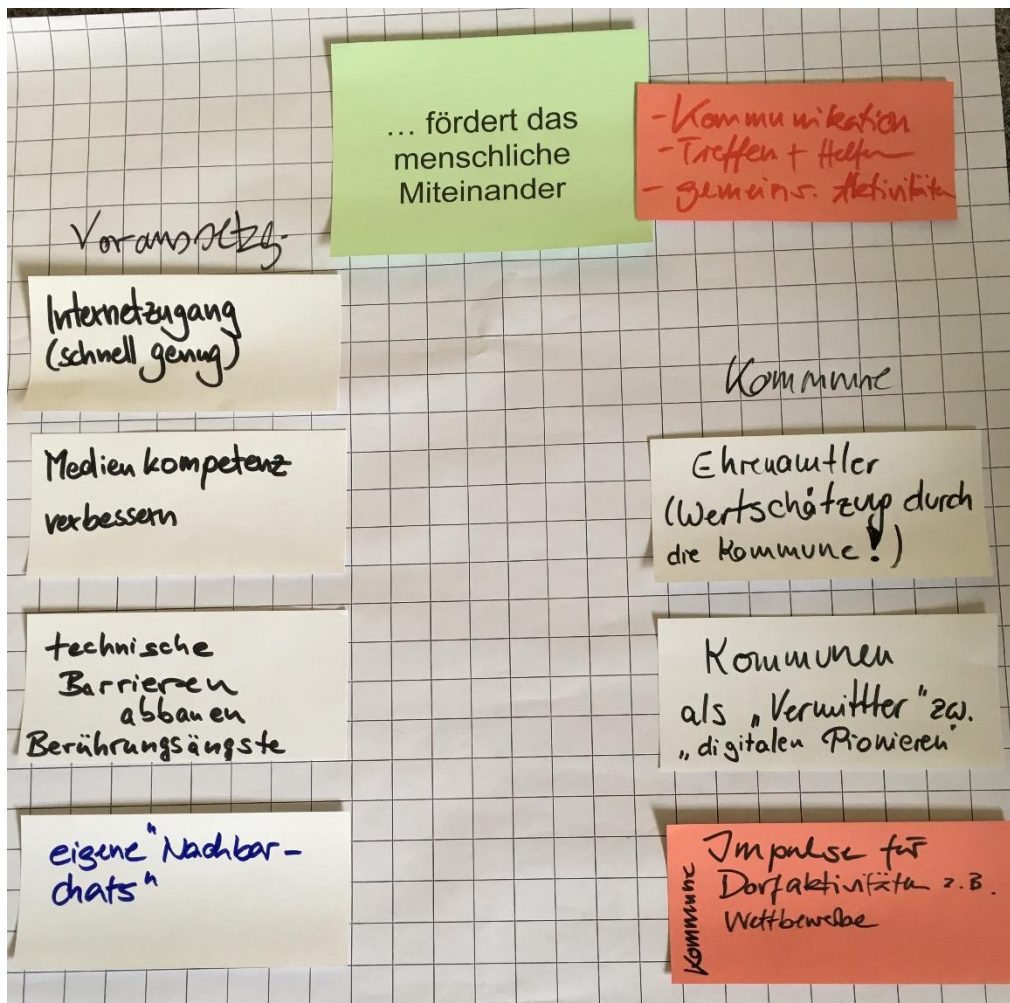 ... fördert das
menschliche
Miteinander
- Kommunikation
- Treffen + Helfen
- gemeins. Aktivitäten
Voraussetzg.
Internetzugang
(schnell genug)
Medienkompetenz
verbessern
technische
Barrieren
abbauen
Berührungsängste
eigene "Nachbar-
chats"
Kommune
Ehrenamtler
(Wertschätzung durch
die Kommune!)
Kommunen
als „Vermittler" zw.
„digitalen Pionieren"
Kommune
Impulse für
Dorfaktivitäten z.B.
Wettbewerbe